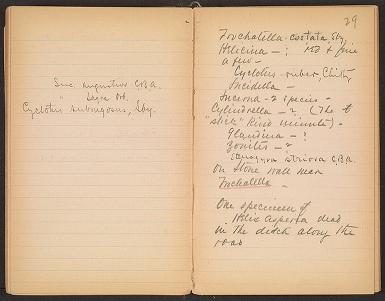 Suc. angustior C.B.A.
" Sagra Orb.
Cyclotus subrugosus, Sby.
29
Trochatella costata, Sby.
Helicina - ; red & fine
a few -
Cyclotus - ruber, Chitty
Lucidella -
Lucerna - 2 species -
Cylindrella - 2 (The
"slick" kind minute) -
Glandina - 1
Zonites - 2
striosa C.B.A.
On stone wall near
Trochatella -
One specimen of
Helix aspersa dead
in the ditch along the
road